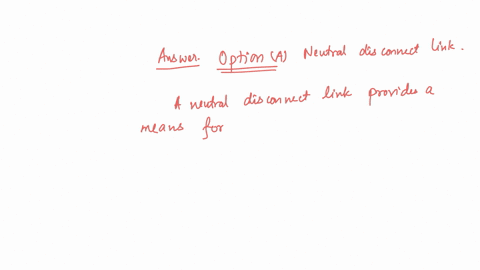 Answer. Option (A) Neutral disconnect link.
A neutral disconnect link provides a
means for